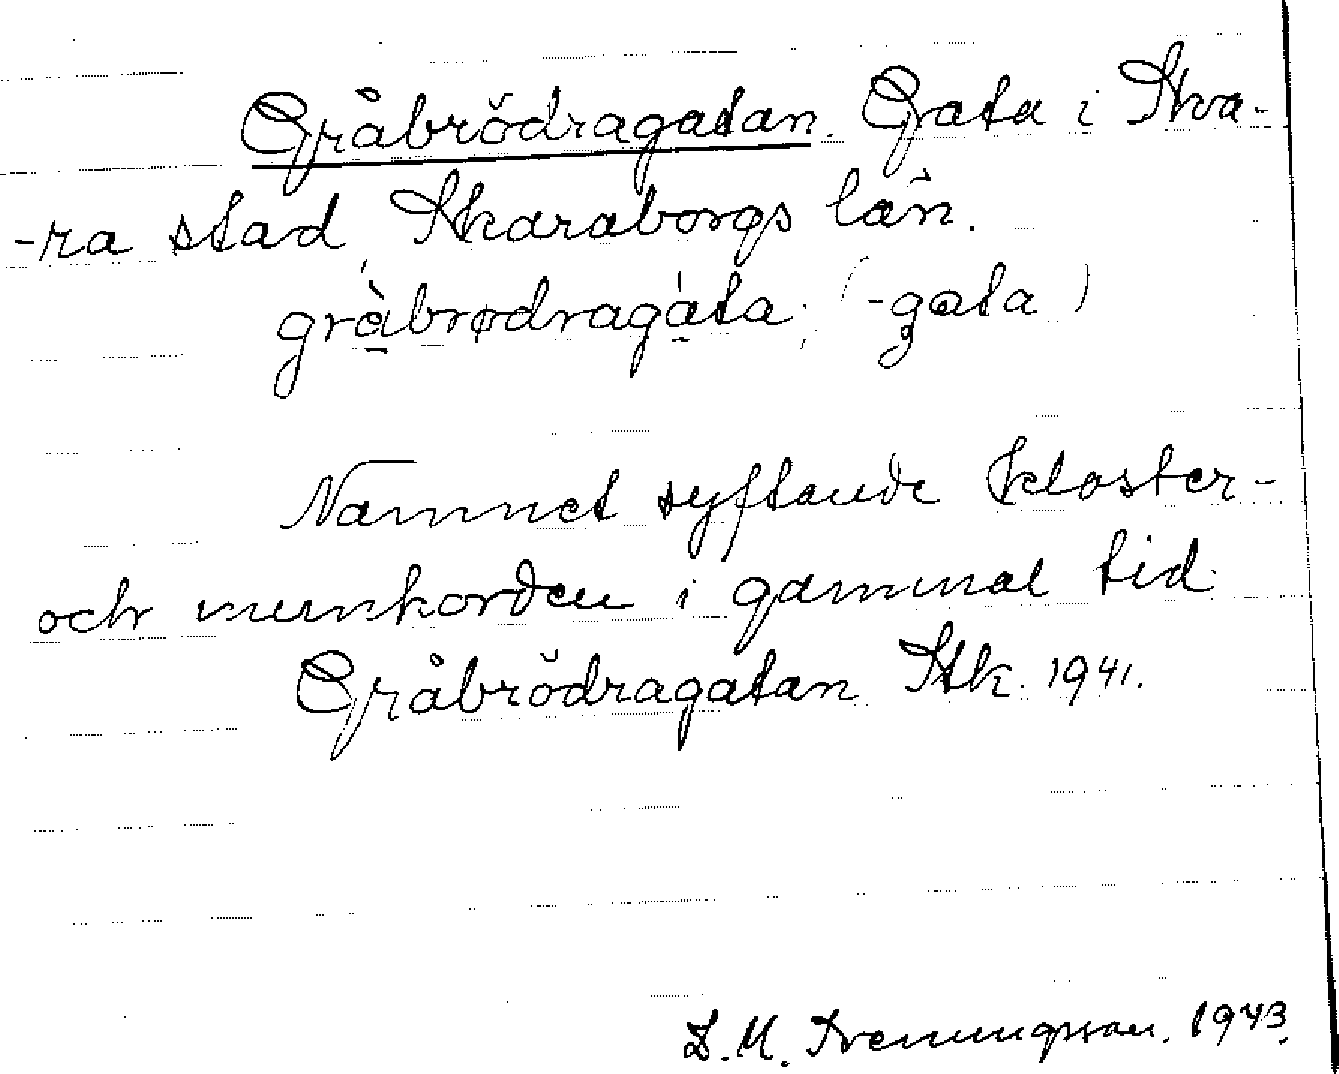 Gråbrödragatan. Gata i Ska-
-ra stad, Skaraborgs län.
gràbrødragáta; (-gata)
Namnet syftande kloster-
och munkorden i gammal tid.
Gråbrödragatan Stk. 1941.
L. M. 1943.